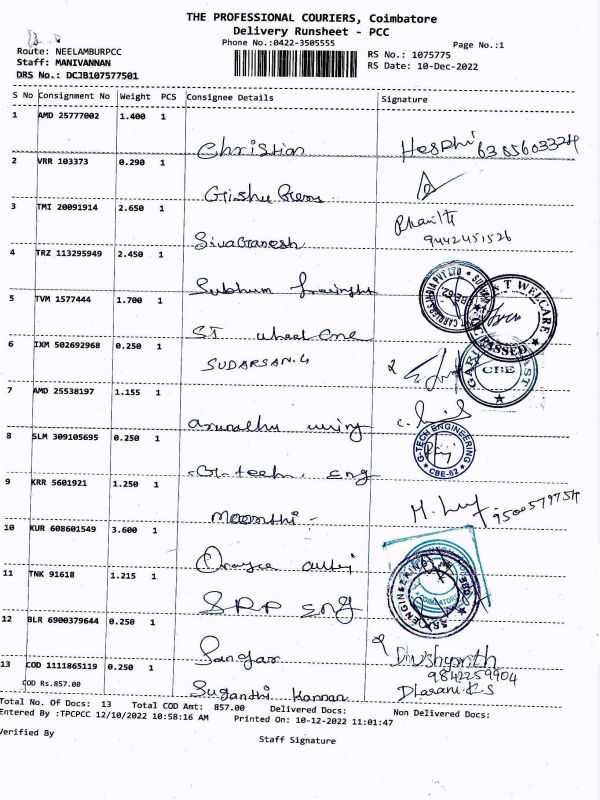 THE PROFESSIONAL COURIERS, Coimbatore
Delivery Runsheet - PCC
Phone No.:0422-3505555
Page No.:1
Route: NEELAMBURPCC
Staff: MANIVANNAN
DRS No.: DCJB107577501
RS No.: 1075775
RS Date: 10-Dec-2022
S No Consignment No Weight PCS Consignee Details Signature
1 AMD 25777002 1.400 1
Christian 6385603324
2 VRR 103373 0.290 1
3 TMI 20091914 2.650 1
SivaGanesh 9442451526
4 TRZ 113295949 2.450 1
Subhum
5 TVM 1577444 1.700 1
ST wheel
T WELCARE
PASSED
6 IXM 502692968 0.250 1
SUDARSAN.G
CBE
7 AMD 25538197 1.155 1
8 SLM 309105695 0.250 1
G-tech. eng
G-TECH ENGINEERING
CBE-62
9 KRR 5601921 1.250 1
Moorthi 9500579754
10 KUR 608601549 3.600 1
11 TNK 91618 1.215 1
SRP eng
ENGINEERING
COIMBATORE
12 BLR 6900379644 0.250 1
Sangar
9842259904
13 COD 1111865119 0.250 1
COD Rs.857.00
Suganthi Kannan
Total No. Of Docs: 13 Total COD Amt: 857.00 Delivered Docs: Non Delivered Docs:
Entered By :TPCPCC 12/10/2022 10:58:16 AM Printed On: 10-12-2022 11:01:47
Verified By
Staff Signature